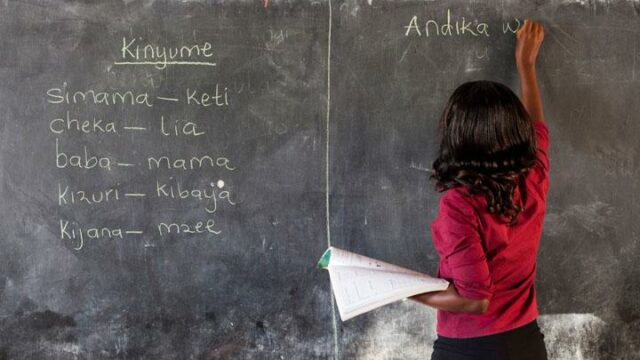 Kinyume
simama — keti
cheka — lia
baba — mama
kizuri — kibaya
Kijana — mzee
Andika